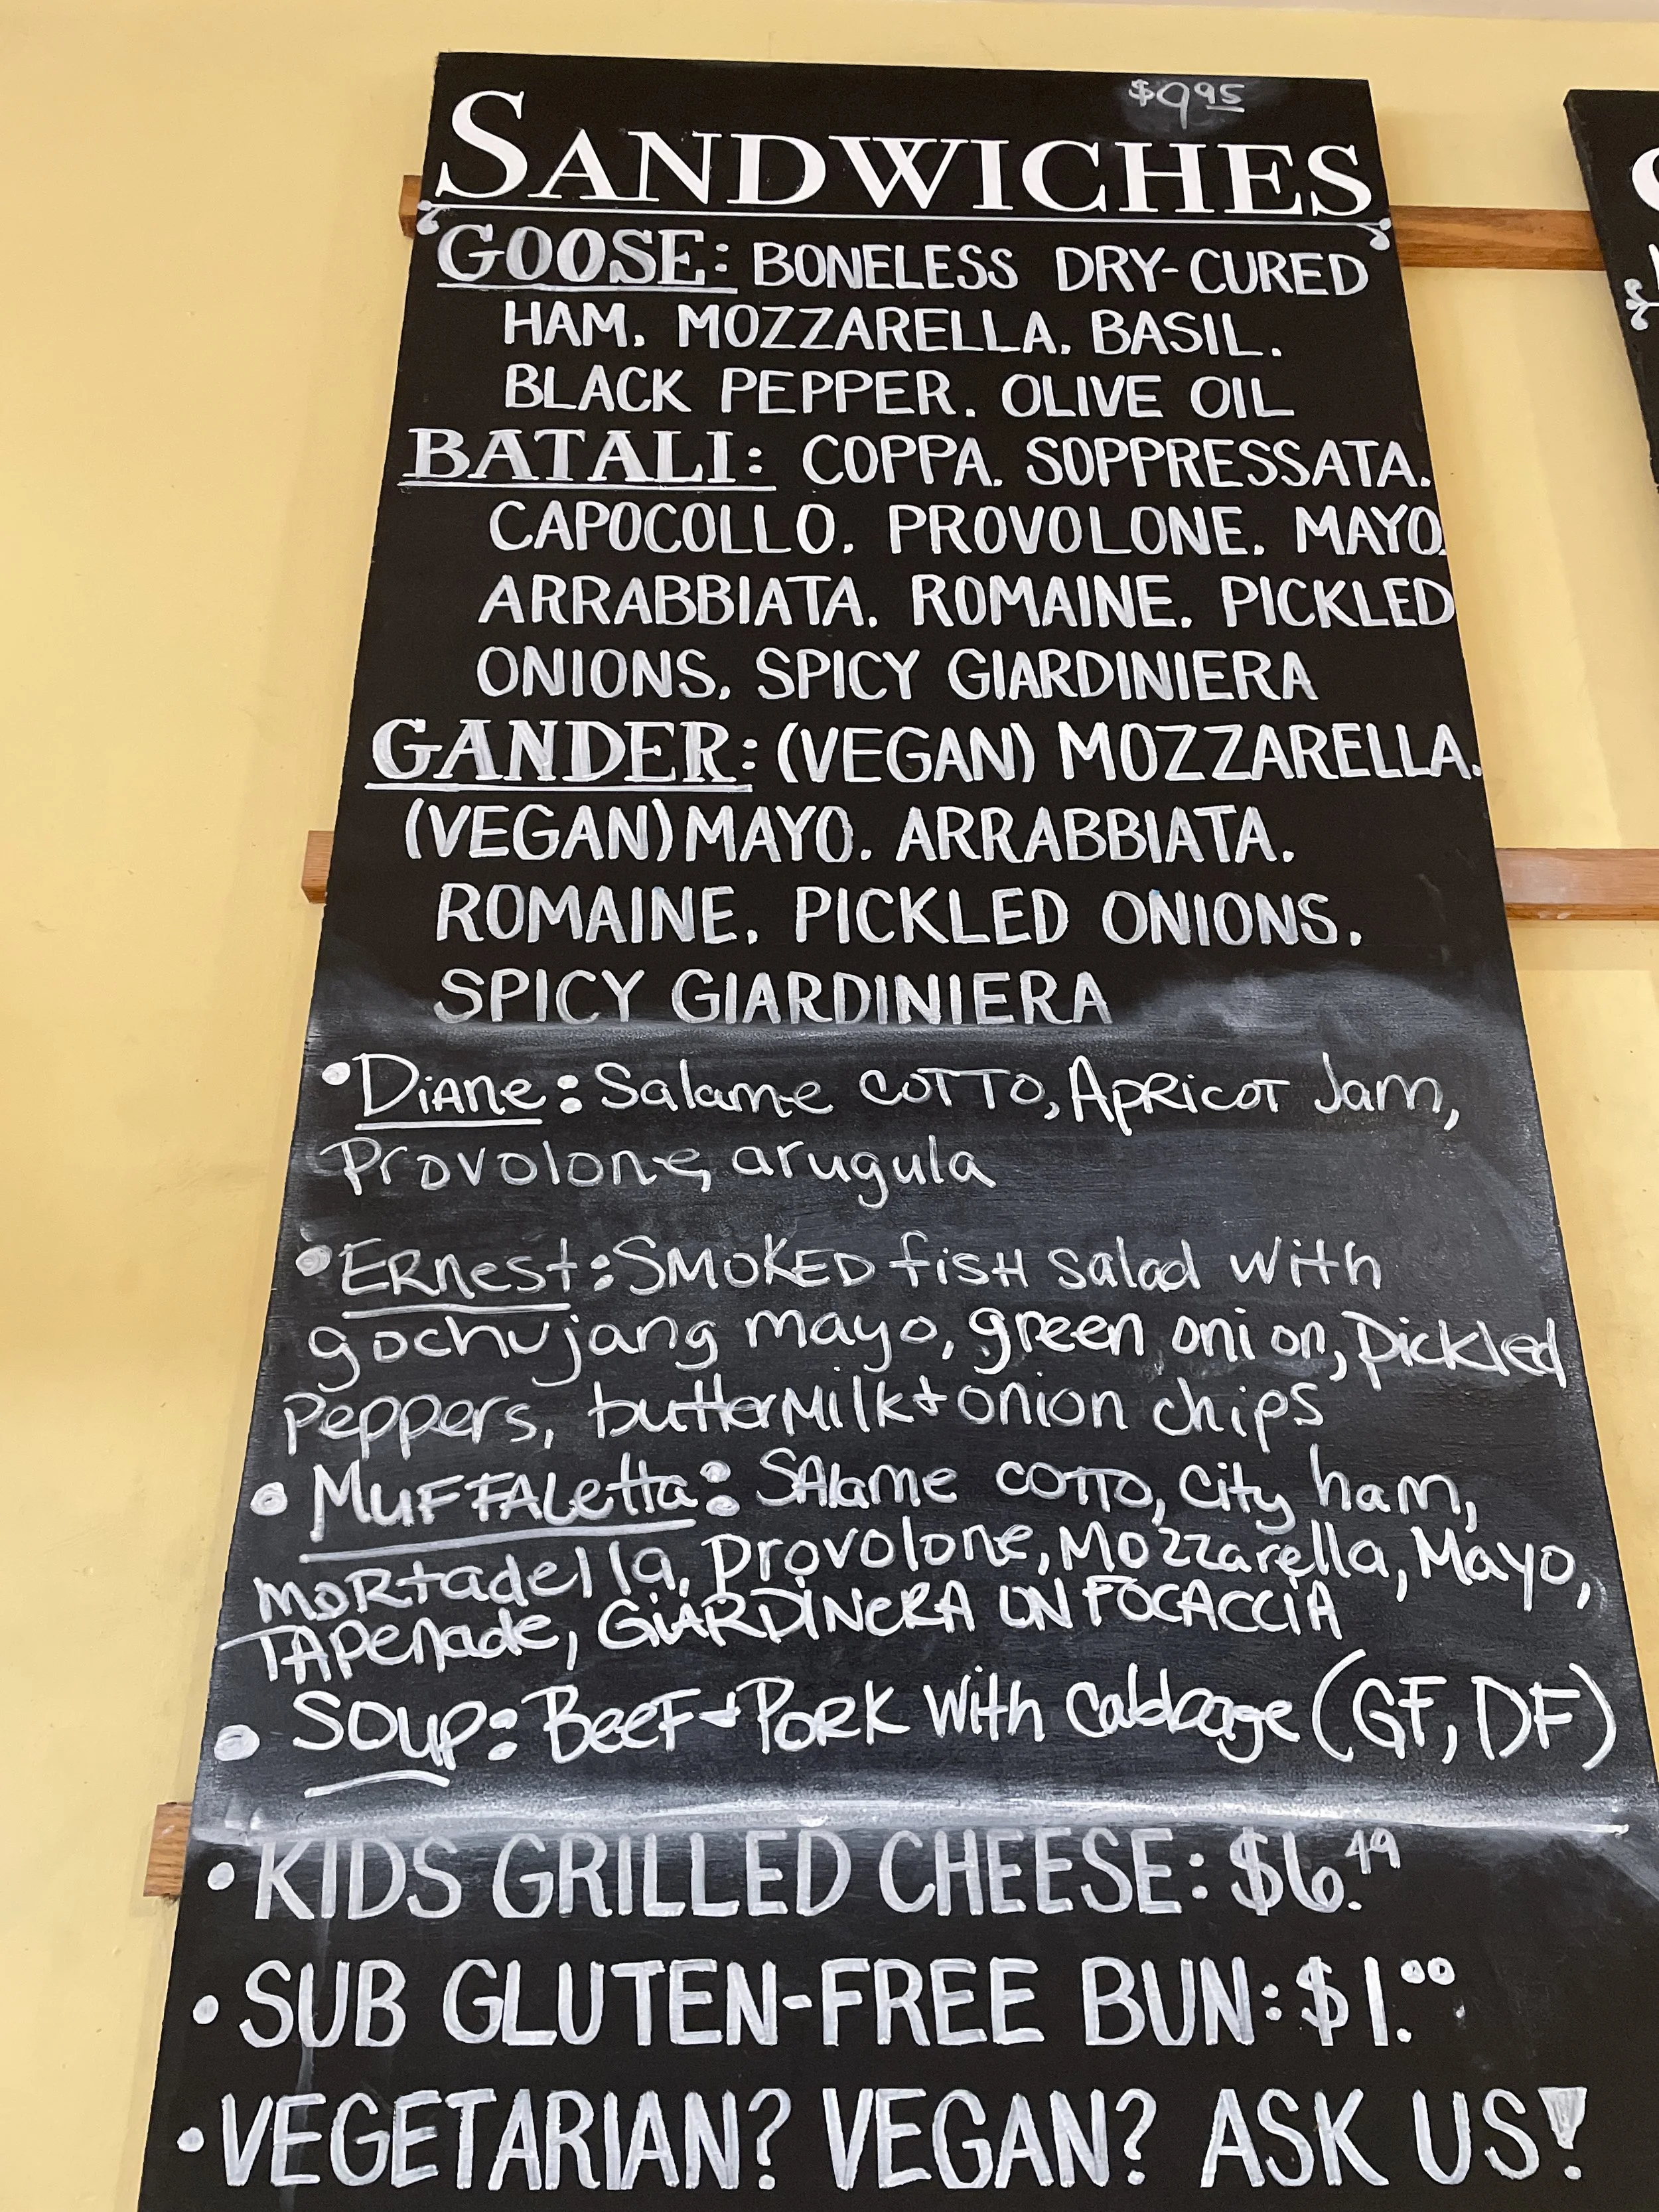 $9.95
SANDWICHES
GOOSE: BONELESS DRY-CURED
HAM. MOZZARELLA. BASIL.
BLACK PEPPER. OLIVE OIL
BATALI: COPPA. SOPPRESSATA.
CAPOCOLLO. PROVOLONE. MAYO.
ARRABBIATA. ROMAINE. PICKLED
ONIONS. SPICY GIARDINIERA
GANDER: (VEGAN) MOZZARELLA.
(VEGAN) MAYO. ARRABBIATA.
ROMAINE. PICKLED ONIONS.
SPICY GIARDINIERA
• Diane: Salame COTTO, Apricot Jam,
Provolone, arugula
• Ernest: SMOKED fish salad with
gochujang mayo, green onion, pickled
peppers, buttermilk + onion chips
• MUFFALetta: SAlame COTTO, City ham,
mortadella, provolone, Mozzarella, Mayo,
TAPenade, GIARDINERA ON FOCACCIA
• Soup: Beef + Pork with Cabbage (GF, DF)
• KIDS GRILLED CHEESE: $6.49
• SUB GLUTEN-FREE BUN: $1.00
• VEGETARIAN? VEGAN? ASK US!